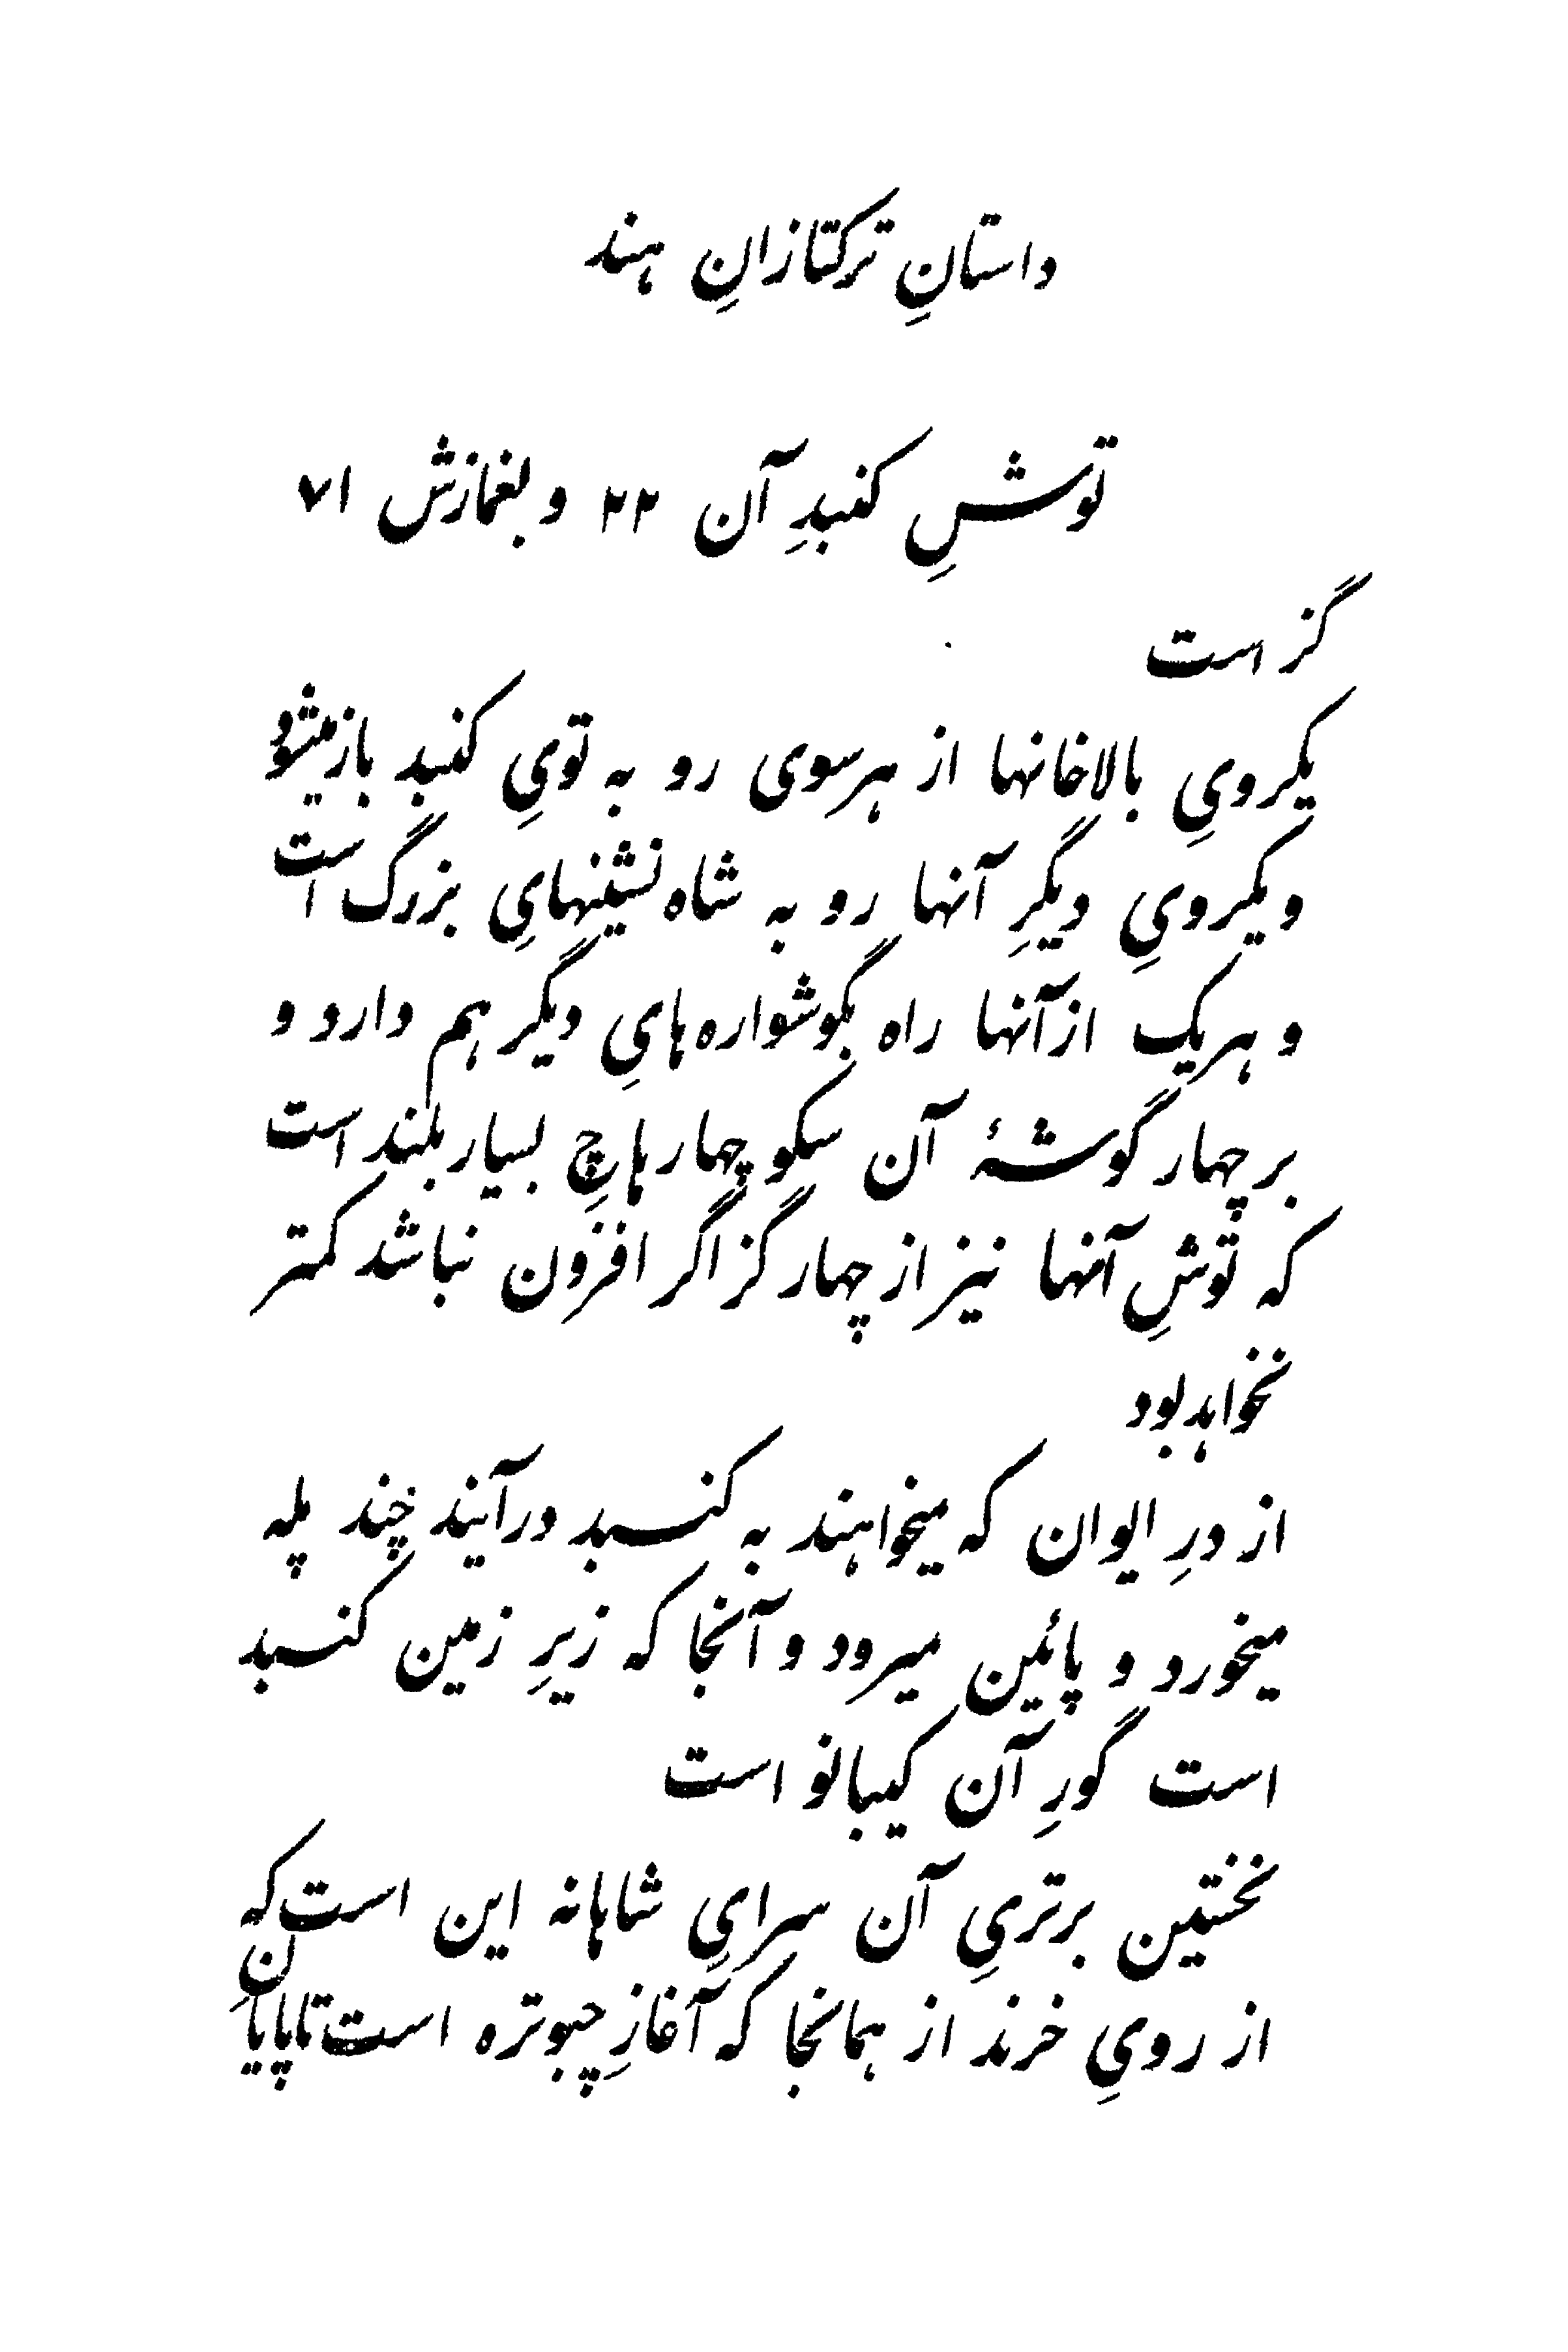 داستانِ ترکتازانِ هند
توشِ گنبدِ آن ۲۲ و بغمازش ۷۱
گز است
یکرویِ بالاخانها از هر سوی رو به تویِ گنبد باز میشود
و یکرویِ دیگرِ آنها رو به شاه نشینهایِ بزرگ است
و هر یک از آنها راه بگوشواره هایِ دیگر هم دارد و
بر چهار گوشهٔ آن سکو چهار هاچِ بسیار بلند است
که توشِ آنها نیز از چهار گز اگر افزون نباشد کمتر
نخواهد بود
از درِ ایوان که میخواهند به گنبد درآیند چند پله
میخورد و پائین میرود و آنجا که زیرِ زمین گنبد
است گورِ آن کیبانو است
نخستین برتریِ آن سرایِ شاهانه این است که
از رویِ خرند از همانجا که آغازِ چبوتره است تا پایانِ